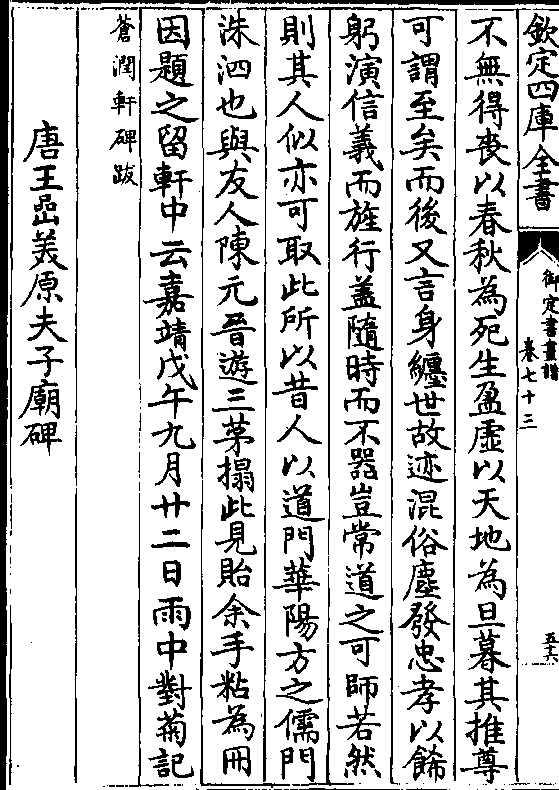 欽定四庫全書
御定書畫譜
卷七十三
五六
不無得喪以春秋為死生盈虛以天地為旦暮其推尊
可謂至矣而後又言身纏世故迹混俗塵發忠孝以餙
躬演信義而旌行葢隨時而不器豈常道之可師若然
則其人似亦可取此所以昔人以道門華陽方之儒門
洙泗也與友人陳元晉遊三茅搨此見貽余手粘為冊
因題之留軒中云嘉靖戊午九月廿二日雨中對菊記
蒼潤軒碑跋
唐王嵒美原夫子廟碑